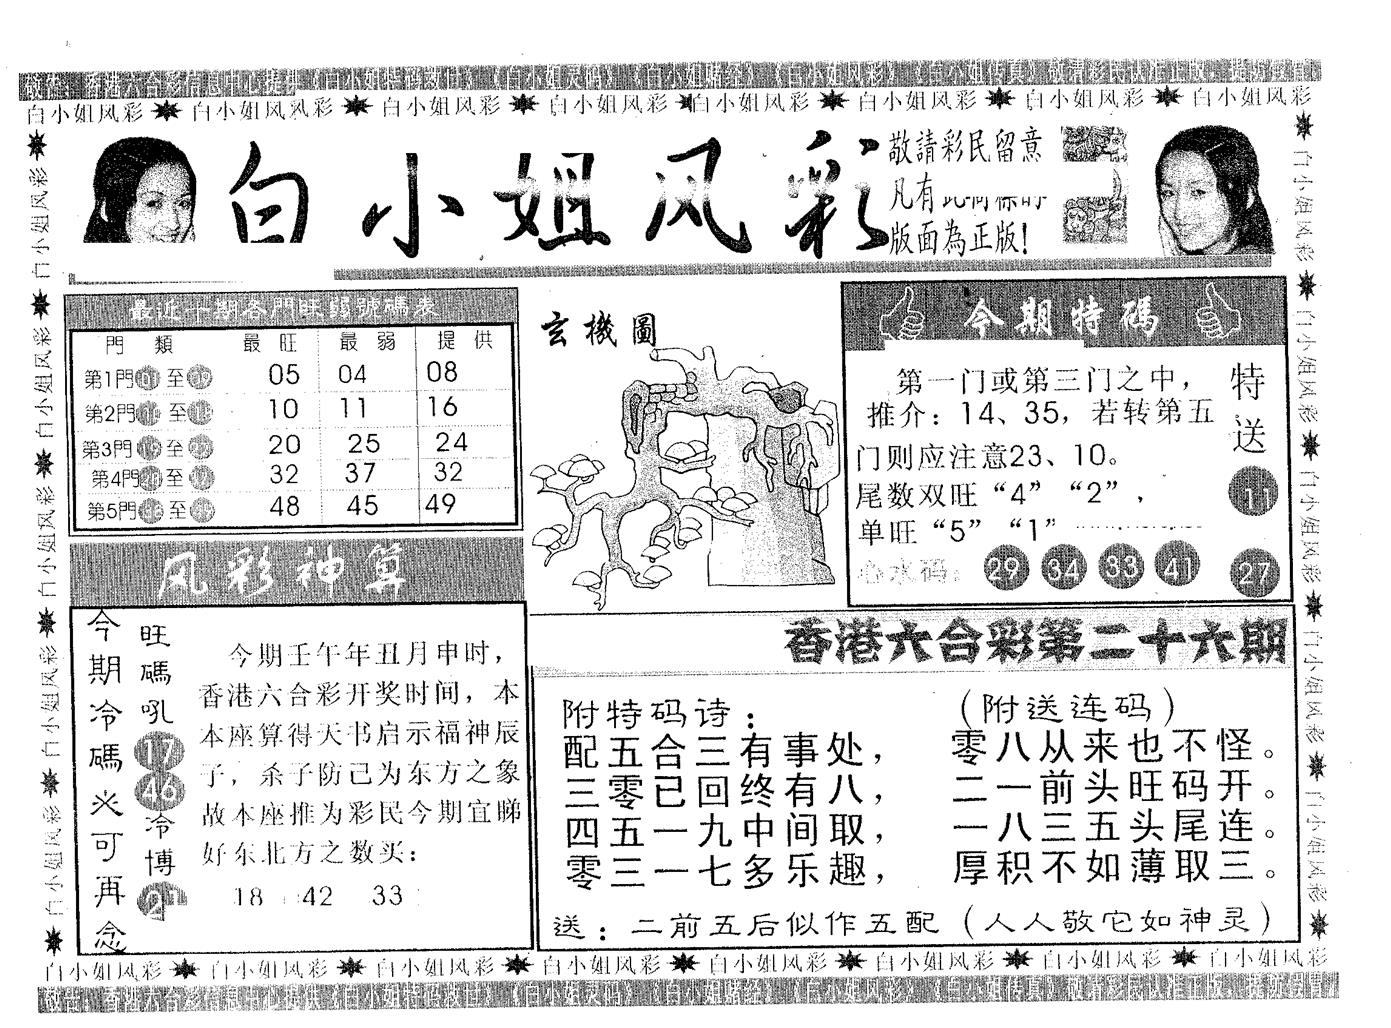 敬告：香港六合彩信息中心提供《白小姐特码救世》《白小姐灵码》《白小姐赌经》《白小姐风彩》《白小姐传真》敬请彩民认准正版，
白小姐风彩 白小姐风彩 白小姐风彩 白小姐风彩 白小姐风彩 白小姐风彩 白小姐风彩 白小姐风彩
白小姐风彩
敬請彩民留意
凡有此商標的
版面為正版!
最近十期各門旺弱號碼表
門類 最旺 最弱 提供
第1門01至09 05 04 08
第2門 至 10 11 16
第3門 至 20 25 24
第4門 至 32 37 32
第5門 至 48 45 49
玄機圖
今期特碼
第一门或第三门之中，
推介：14、35，若转第五
门则应注意23、10。
尾数双旺“4”“2”，
单旺“5”“1”
心水码：29 34 33 41
特送
11
27
风彩神算
今期冷碼必可再念
旺碼吼17 46冷博21
今期壬午年丑月申时，
香港六合彩开奖时间，本
本座算得天书启示福神辰
子，杀子防己为东方之象
故本座推为彩民今期宜睇
好东北方之数买：
18 42 33
香港六合彩第二十六期
附特码诗：（附送连码）
配五合三有事处，零八从来也不怪。
三零已回终有八，二一前头旺码开。
四五一九中间取，一八三五头尾连。
零三一七多乐趣，厚积不如薄取三。
送：二前五后似作五配（人人敬它如神灵）
白小姐风彩 白小姐风彩 白小姐风彩 白小姐风彩 白小姐风彩 白小姐风彩 白小姐风彩 白小姐风彩